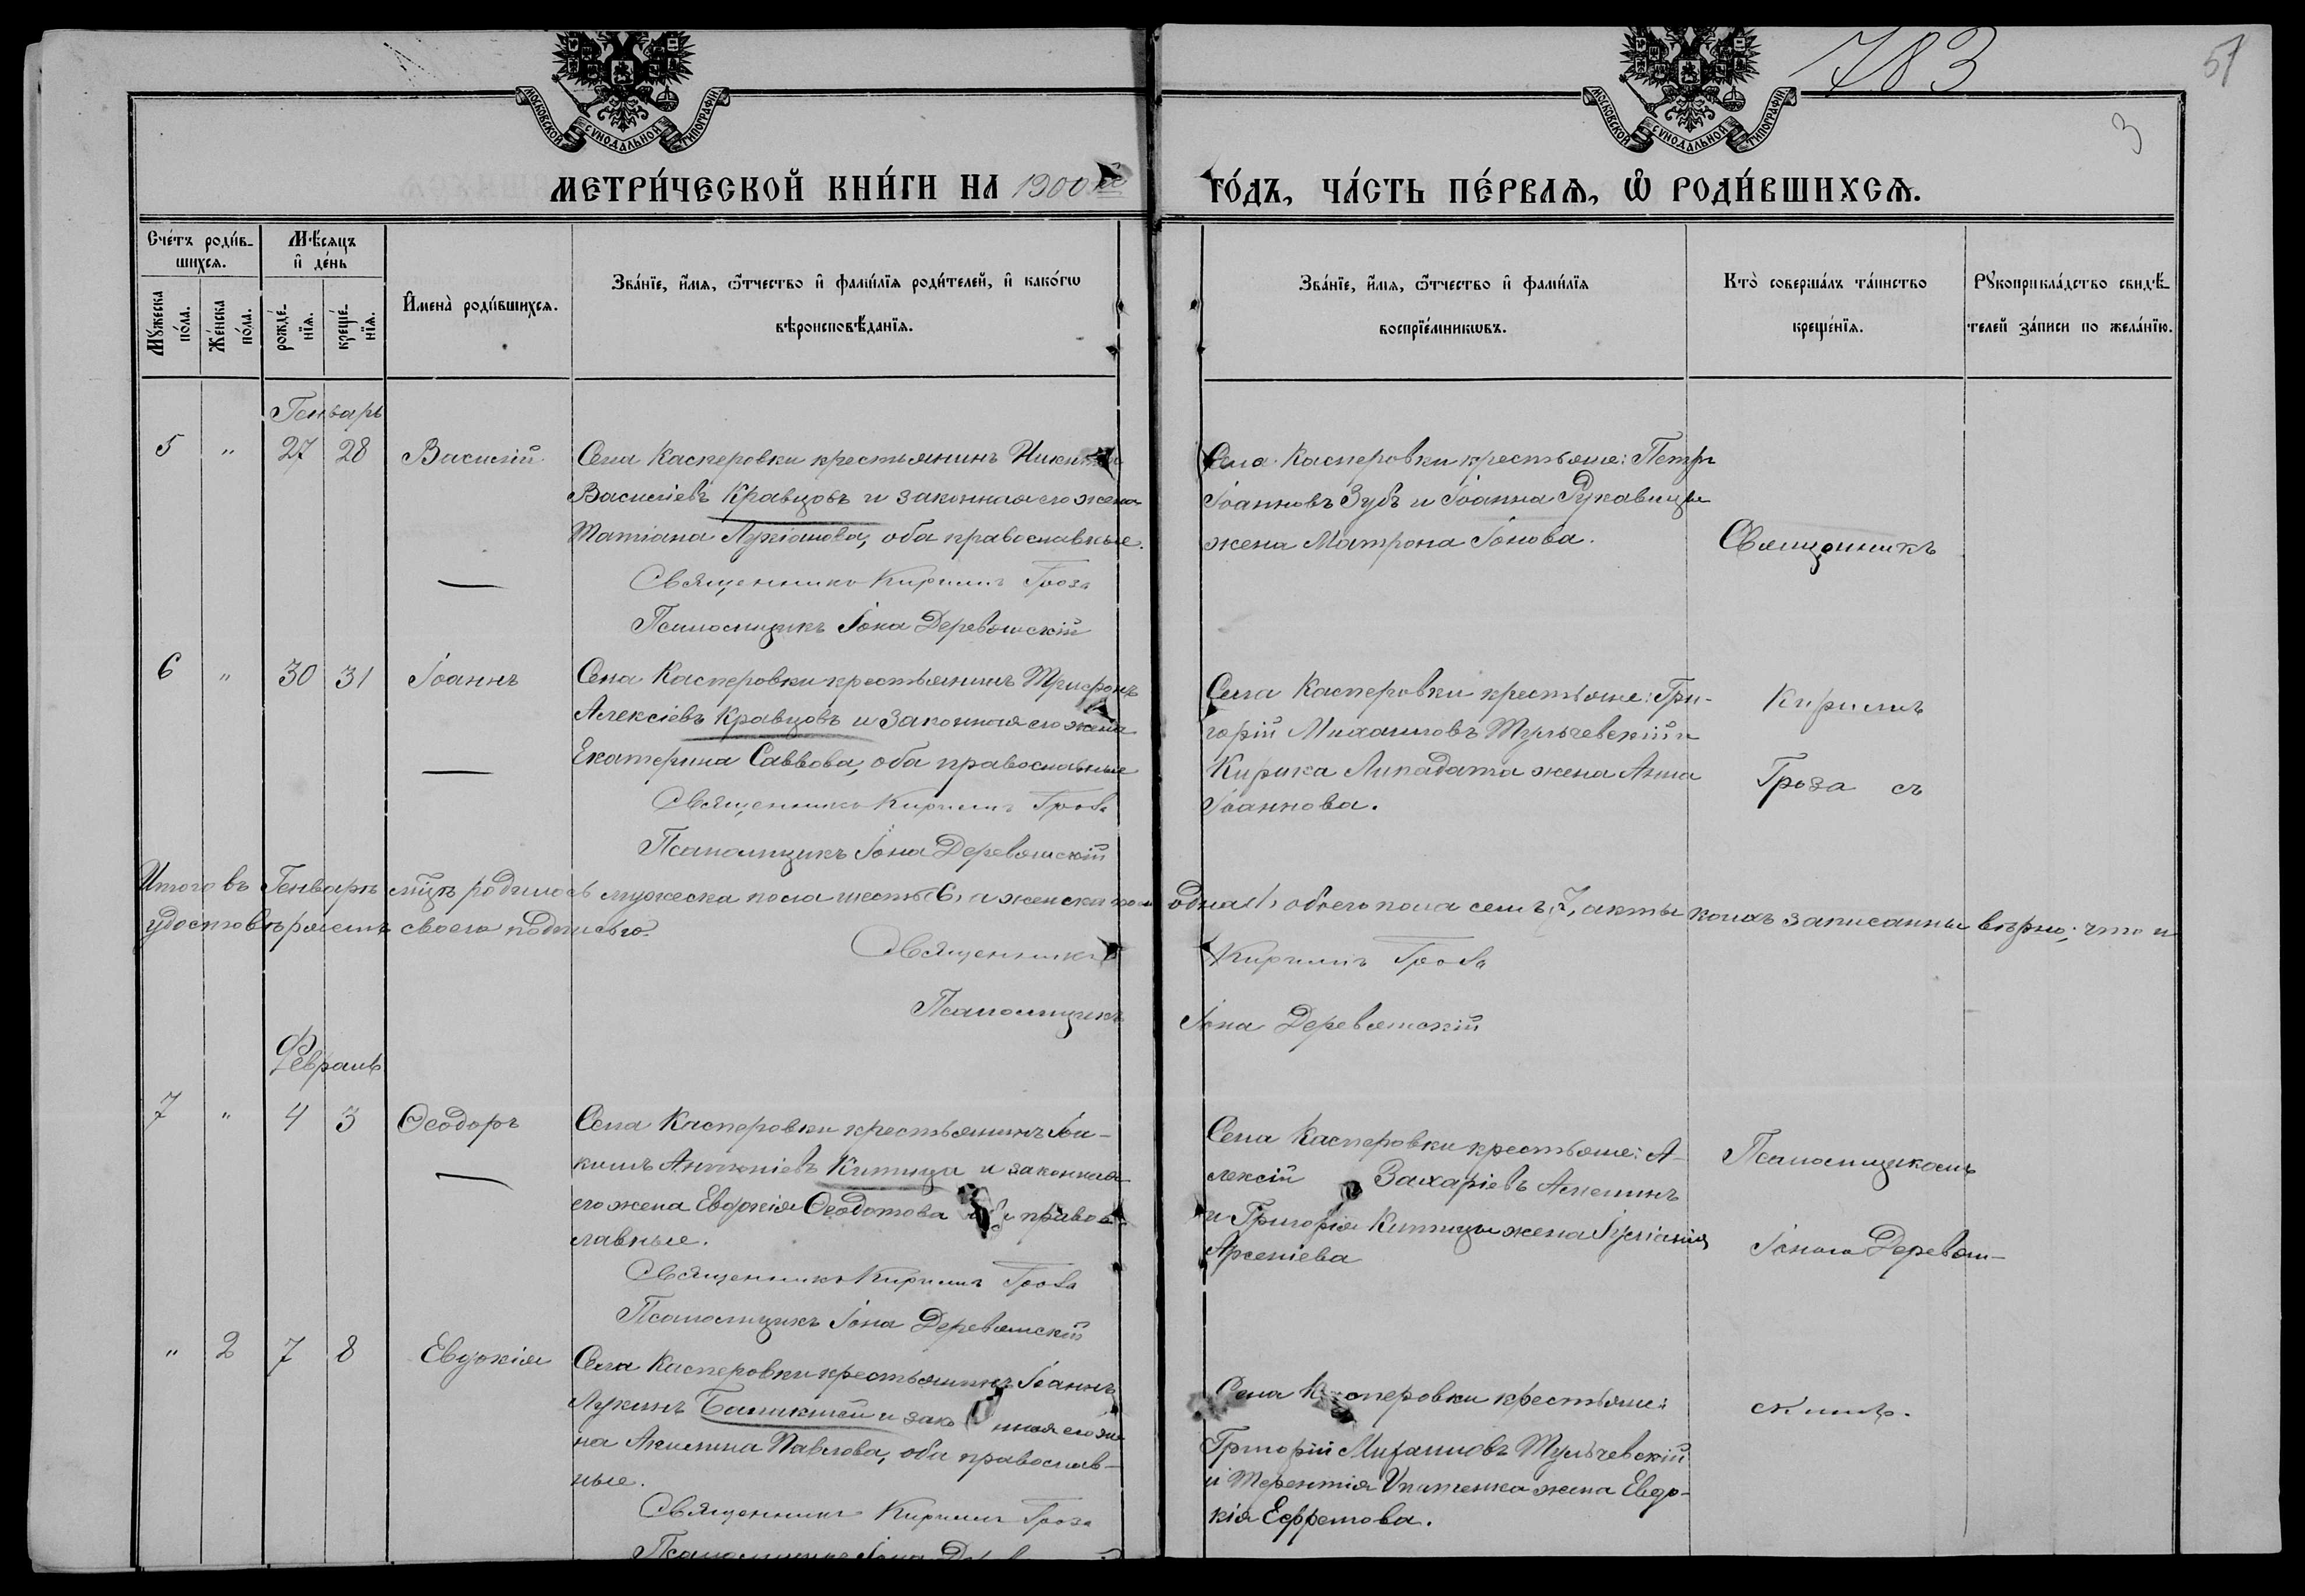 783
51
3
МОСКОВСКОЙ СѴНОДАЛЬНОЙ ТИПОГРАФІИ
МОСКОВСКОЙ СѴНОДАЛЬНОЙ ТИПОГРАФІИ
МЕТРИ́ЧЕСКОЙ КНИ́ГИ НА 1900й
ГО́ДЪ, ЧА́СТЬ ПЕ́РВАѦ, Ѽ РОДИ́ВШИХСѦ.
Сче́тъ роди́в-
шихсѧ.
Мꙋжеска
по́ла.
Же́нска
по́ла.
Мѣ́сѧцъ
и҆ де́нь
рожде́-
нїѧ.
креще́-
нїѧ.
И҆мена̀ роди́вшихсѧ.
Зва́нїе, и҆́мѧ, ѻ҆́тчество и҆ фами́лїѧ роди́телей, и҆ како́гѡ
вѣроисповѣ́данїѧ.
Зва́нїе, и҆́мѧ, ѻ҆́тчество и҆ фами́лїѧ
воспрїе́мникѡвъ.
Кто̀ соверша́лъ та́инство
креще́нїѧ.
Рꙋкоприкла́дство свидѣ́-
телей за́писи по жела́нїю.
Генварь
5 " 27 28 Василій
Села Касперовки крестьянинъ Никита
Василіевъ Кравцовъ и законная его жена
Татіана Лукіанова, оба православные.
Священникъ Кириллъ Гроза
Псаломщикъ Іона Деревянскій
Села Касперовки крестьяне: Петръ
Іоанновъ Зубъ и Іоанна Рукавицы
жена Матрона Іонова.
Священникъ
6 " 30 31 Іоаннъ
Села Касперовки крестьянинъ Трифонъ
Алексіевъ Кравцовъ и законная его жена
Екатерина Саввова, оба православные
Священникъ Кириллъ Гроза
Псаломщикъ Іона Деревянскій
Села Касперовки крестьяне: Гри-
горій Михаиловъ Тульчевскій и
Кирика Липадата жена Анна
Іоаннова.
Кириллъ
Гроза съ
Итого въ Генварѣ мцѣ родилось мужеска пола шесть 6, а женска пола одна 1, обоего пола семь 7, акты коихъ записанны вѣрно; что и
удостовѣряемъ своею подписью.
Священникъ Кириллъ Гроза
Псаломщикъ Іона Деревянскій
Февраль
7 " 4 5 Ѳеодоръ
Села Касперовки крестьянинъ Іоа-
кимъ Антоніевъ Китица и законная
его жена Евдокія Ѳеодотова оба право-
славные.
Священникъ Кириллъ Гроза
Псаломщикъ Іона Деревянскій
Села Касперовки крестьяне: А-
лексій Захаріевъ
и Григорія Китицы жена Іуліанія
Арсеніева
Псаломщикомъ
Іоною Деревян-
" 2 7 8 Евдокія
Села Касперовки крестьянинъ Іоаннъ
Лукинъ и законная его же-
на Акилина Павлова, оба православ-
ные.
Священникъ Кириллъ Гроза
Псаломщикъ Іона
Села Касперовки крестьяне:
Григорій Михаиловъ Тульчевскій
и Терентія жена Евдо-
кія Ефремова.
скимъ.